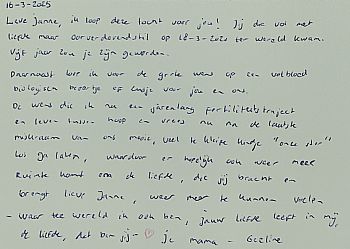 16-3-2025
Lieve Janne, ik loop deze tocht voor jou! Jij die vol met
liefde maar oorverdovend stil op 18-3-2020 ter wereld kwam.
Vijf jaar zou je zijn geworden.
Daarnaast loop ik voor de grote wens op een volbloed
biologisch broertje of zusje voor jou en ons.
De wens die ik nu een jarenlang fertiliteitstraject
en leven tussen hoop en vrees nu na de laatste
miskraam van ons mooie, veel te kleine kindje "onze ster"
los ga laten, waardoor er hopelijk ook weer meer
ruimte komt om de liefde, die jij bracht en
brengt lieve Janne, weer meer te kunnen voelen
- waar ter wereld ik ook ben, jouw liefde leeft in mij,
de liefde, dat ben jij - ♡ je mama -